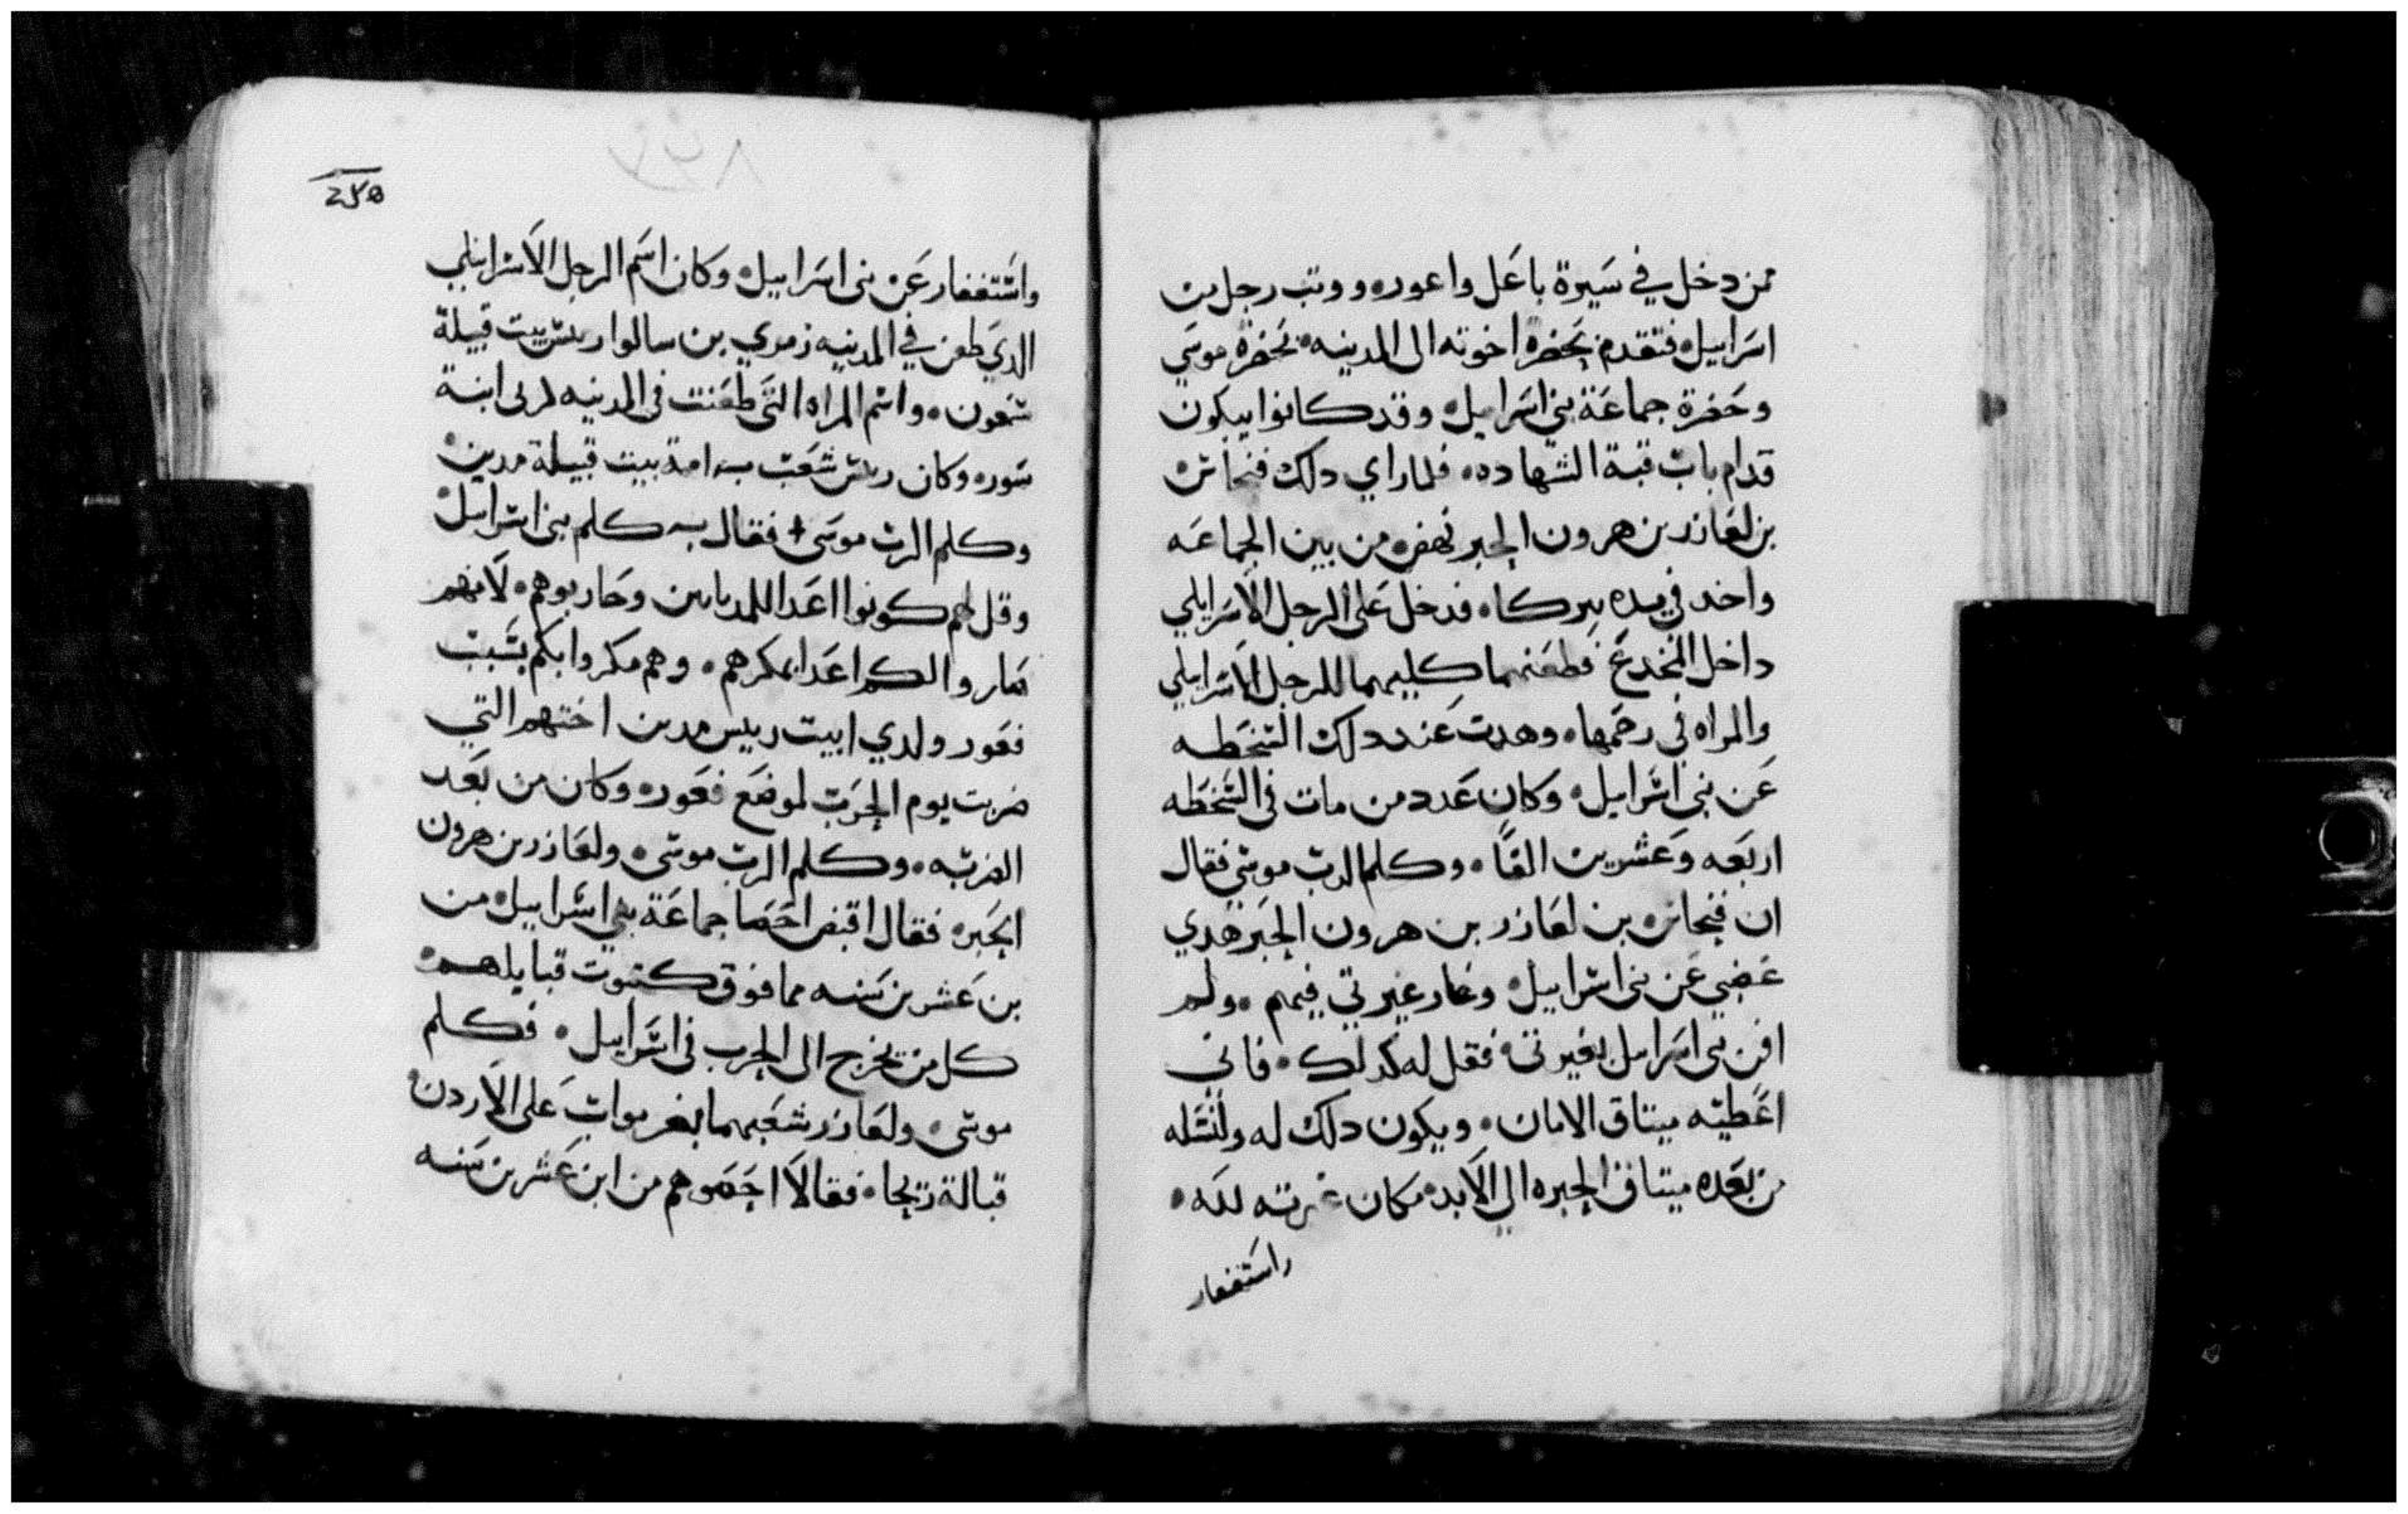 ممن دخل في سيرة باعل واعور ووتب رجل من
اسرابيل فتقدم بحضرة اخوته الى المدينيه بحضرة موسي
وحضرة جماعة بني اسرابيل وقد كانوا يبكون
قدام باب قبة الشهاده فلما راي دلك فنحاس
بن لعازر بن هرون الحبر نهض من بين الجماعه
واخد في يده بيركاه فدخل على الرجل الاسرايلي
داخل المخدع فطعنهما كليهما للرجل الاسرايلي
والمراه في رحمها وهدت عند دلك السخطه
عن بني اسرابيل وكان عدد من مات في السخطه
اربعه وعشرين الفا وكلم الرب موسي فقال
ان فنحاس بن لعازر بن هرون الحبر هدي
غضبي عن بني اسرابيل وغار غيرتي فيهم ولم
افن بني اسرايل بغيرتي فقل له كدلك فاني
اعطيه ميتاق الامان ويكون دلك له ولنسله
من بعده ميتاق الحبره الي الابد مكان غيرته لله
واستغفار
٢٤٥
واستغفار عن بني اسرابيل وكان اسم الرجل الاسرايلي
الدي طعن في المدينيه زمري بن سالوا ريس بيت قبيلة
شمعون واسم المراه التي طعنت في المدينيه ابنة
سور وكان ريس شعب بيت قبيلة مدين
وكلم الرب موسى فقال كلم بني اسرايل
وقل لهم كونوا اعدا للمديانين وحاربوهم لانهم
صاروا لكم اعدا بمكرهم وهم مكروا بكم بسبب
فعور ولدي ابيت رييس مدين اختهم التي
ضربت يوم الحرب لموضع فعور وكان من بعد
الضربه وكلم الرب موسى ولعازر بن هرون
الحبر فقال اقبض احصا جماعة بني اسرابيل من
بن عشرين سنه مما فوق كبيوت قبايلهم
كل من يخرج الى الحرب في اسرابيل فكلم
موسى ولعازر شعبهما بغر مواب على الاردن
قبالة ريحا فقالا احصوهم من ابن عشرين سنه